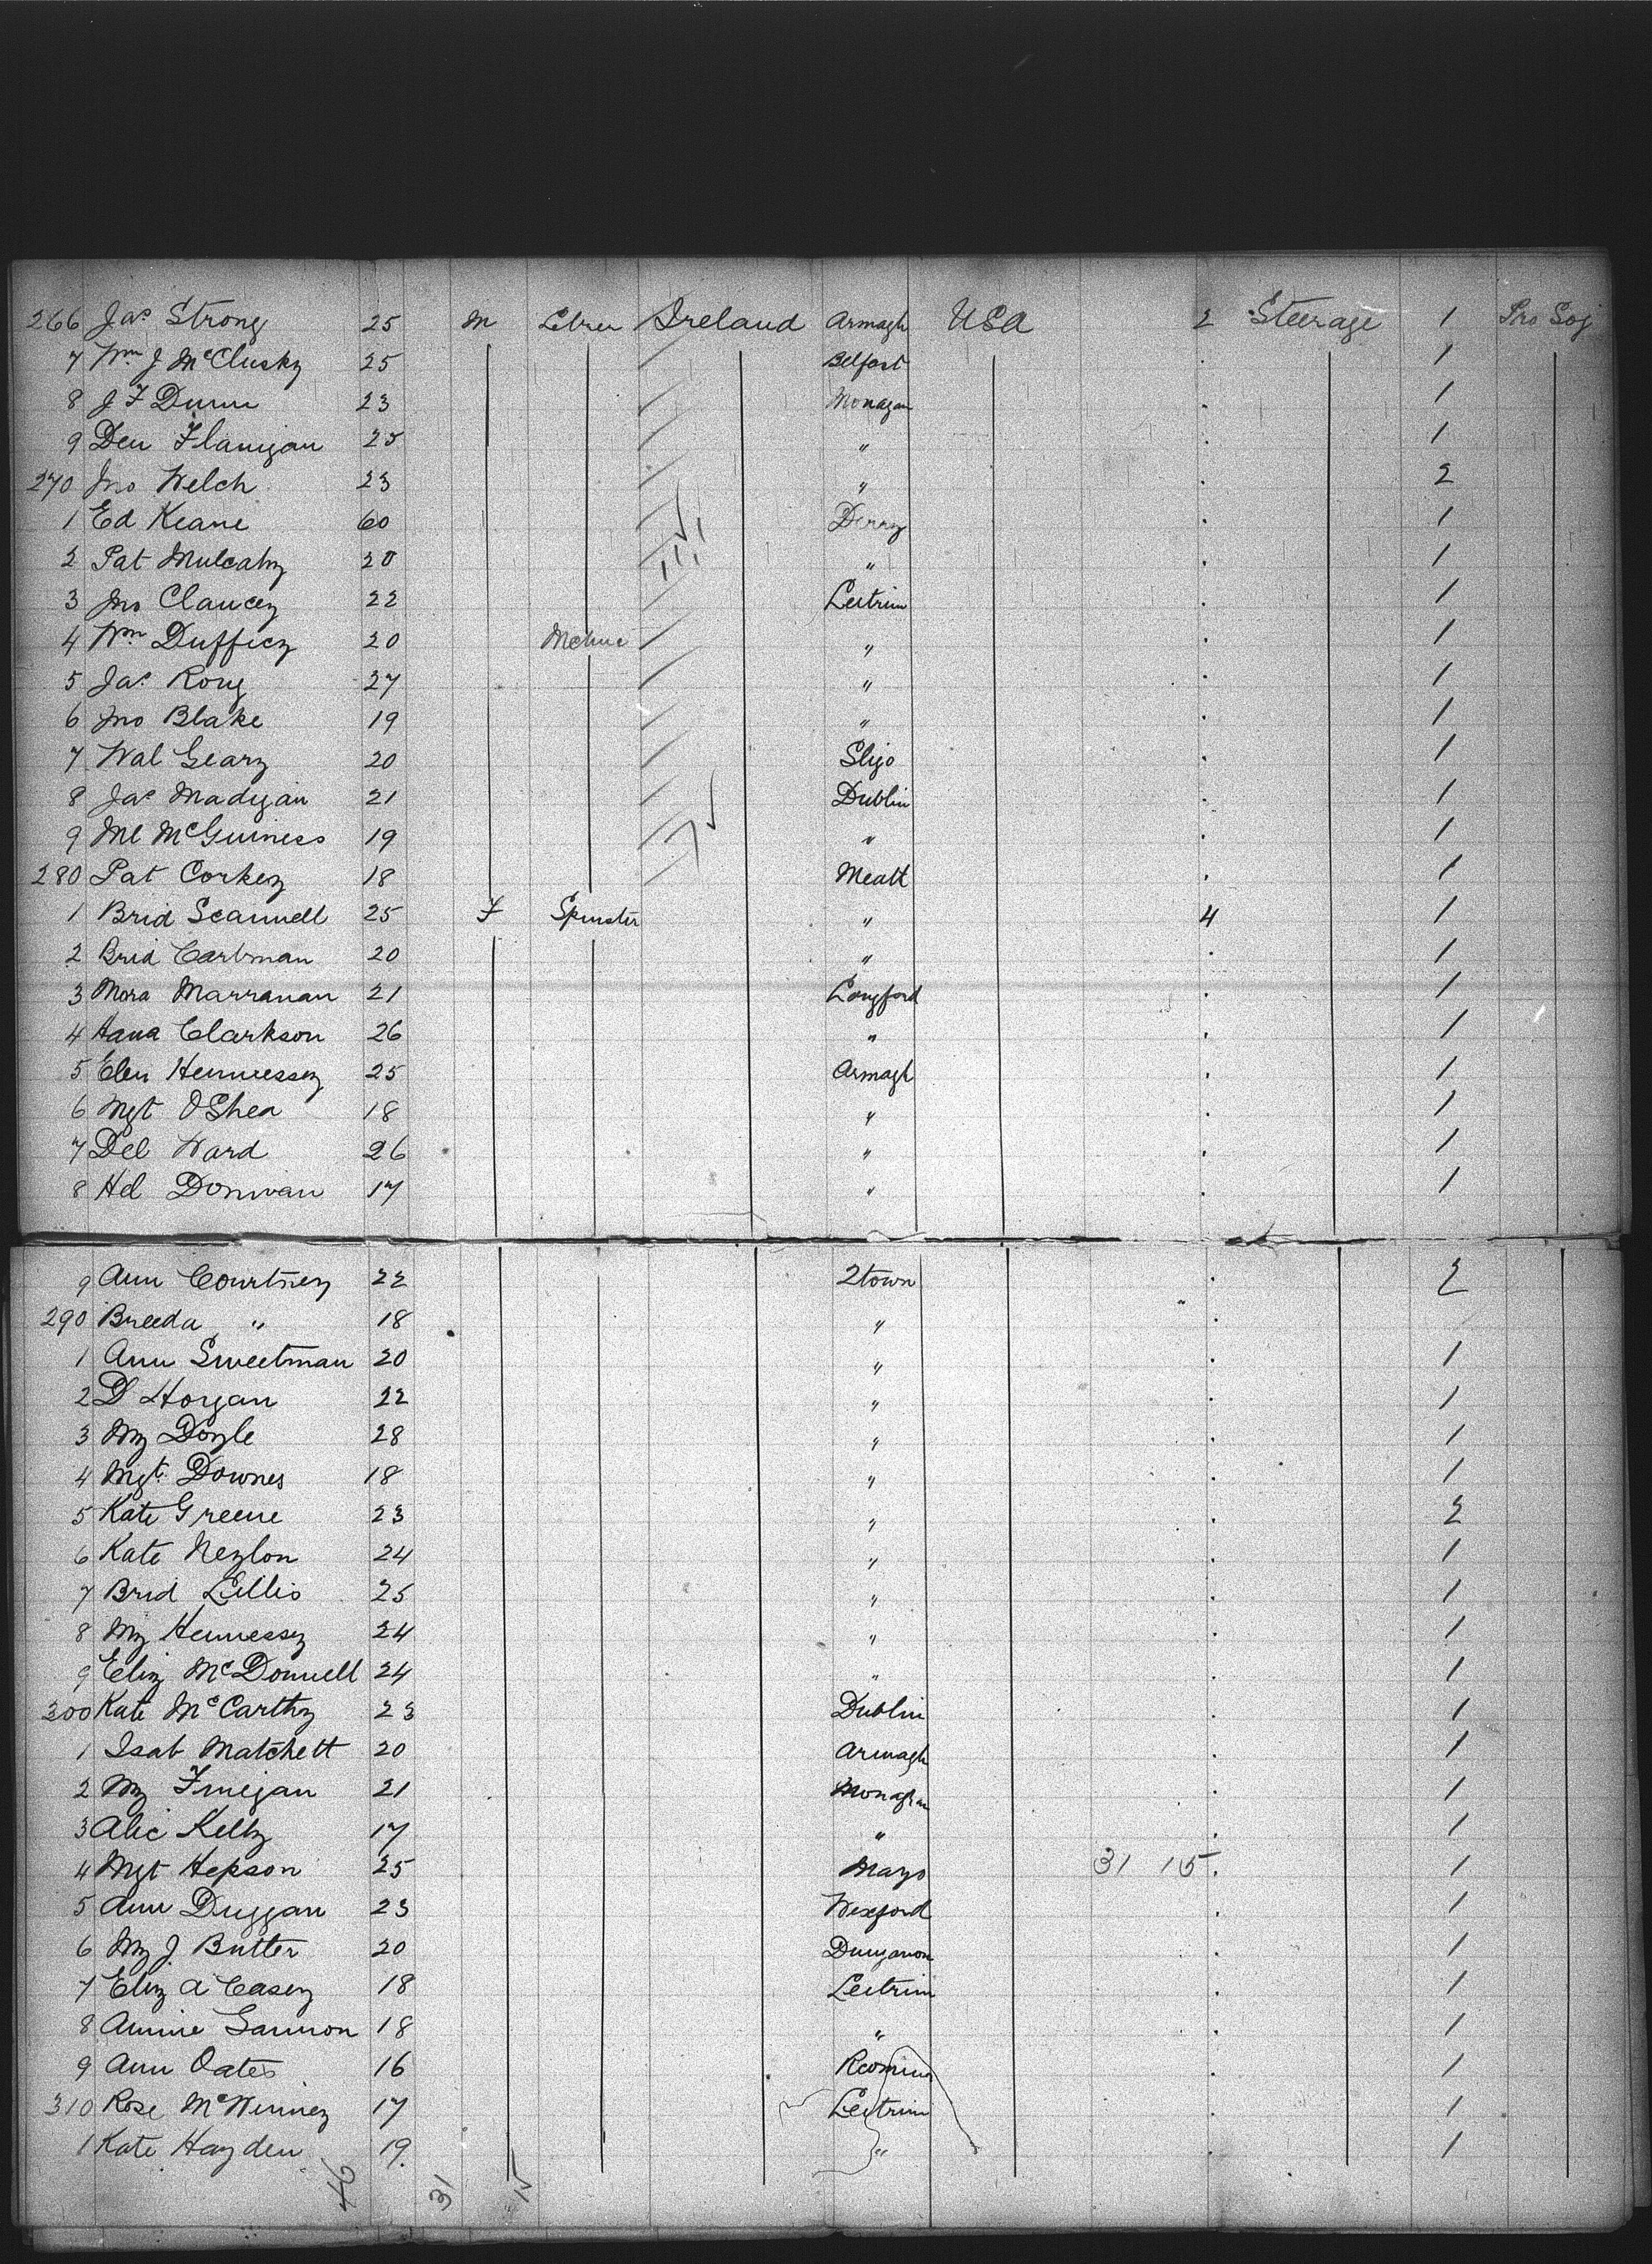 266 Jas Strong 25 M Lbrer Ireland Armagh USA 2 Steerage 1 Pro Soj
7 Wm J McClusky 25 Belfast 1
8 J F Dunn 23 Monagan 1
9 Den Flanigan 25 " 1
270 Jno Welch 23 " 2
1 Ed Keane 60 Derry 1
2 Pat Mulcahy 20 " 1
3 Jno Clancey 22 Leitrim 1
4 Wm Dufficy 20 Mchnc " 1
5 Jas Rony 27 " 1
6 Jno Blake 19 " 1
7 Wal Geary 20 Sligo 1
8 Jas Madigan 21 Dublin 1
9 Ml McGuiness 19 " 1
280 Pat Corkey 18 Meath 1
1 Brid Scannell 25 F Spinster " 4 1
2 Brid Carbman 20 " 1
3 Nora Marranan 21 Longford 1
4 Hana Clarkson 26 " 1
5 Elen Hennessey 25 Armagh 1
6 Mgt OShea 18 " 1
7 Del Ward 26 " 1
8 Hel Donovan 17 " 1
9 Ann Courtney 22 2town 2
290 Breeda " 18 "
1 Ann Sweetman 20 " 1
2 D Horgan 22 " 1
3 My Doyle 28 " 1
4 Mgt Downes 18 " 1
5 Kate Greene 23 " 2
6 Kate Neylon 24 " 1
7 Brid Lillis 25 " 1
8 My Hennessy 24 " 1
9 Eliz McDonnell 24 " 1
300 Kate McCarthy 23 Dublin 1
1 Isab Matchett 20 Armagh 1
2 My Finegan 21 Monaghan 1
3 Alic Kelly 17 " 1
4 Mgt Hepson 25 Mayo 31 15 1
5 Ann Duggan 23 Wexford 1
6 My J Butter 20 Dunganon 1
7 Eliz A Casey 18 Leitrim 1
8 Annie Gannon 18 " 1
9 Ann Oates 16 1
310 Rose McWinney 17 Leitrim 1
1 Kate Hayden 19 " 1
46 31 15